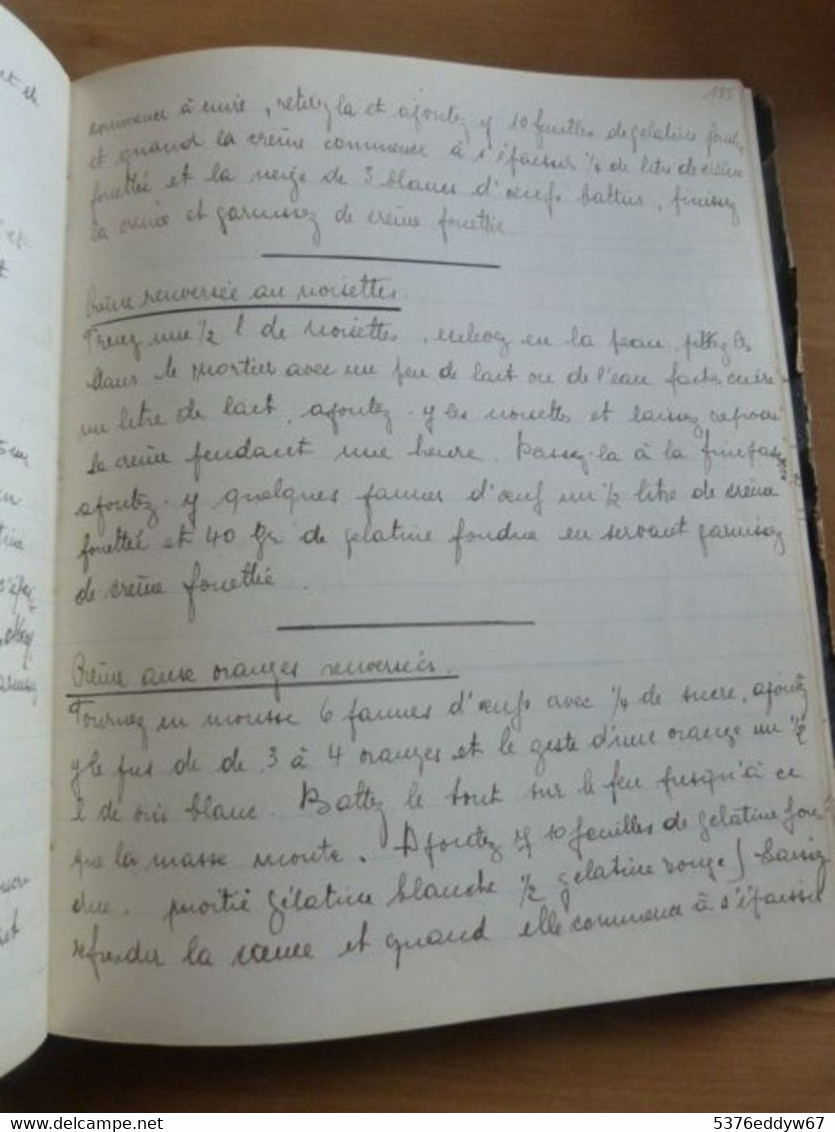 195
commence à cuire, retirez la et ajoutez y 10 feuilles de gelatine fondue
et quand la crème commence à s'épaissir ¼ de litre de crème
fouettée et la neige de 3 blancs d'œufs battus, finissez
la crème et garnissez de crème fouettée
Crème renversée au noisettes.
Prenez une ½ l de noisettes, enlevez en la peau, pillez les
dans le mortier avec un peu de lait ou de l'eau faites cuire
un litre de lait, ajoutez-y les noisettes et laissez reposer
la crème pendant une heure. Passez-la à la fine passoire
ajoutez-y quelques jaunes d'œuf un ½ litre de crème
fouetteé et 40 Gr de gelatine fondue en servant garnissez
de crème fouettée.
Crème aux oranges renversées.
Tournez en mousse 6 jaunes d'œufs avec ¼ de sucre, ajoutez
y le jus de de 3 à 4 oranges et le zeste d'une orange un ½
l de vin blanc. Battez le tout sur le feu jusqu'à ce
que la masse monte. Ajoutez y 10 feuilles de gelatine fon-
due. moitié gélatine blanche ½ gelatine rouge) laissez
refroidir la crème et quand elle commence à s'épaissir
delcampe.net
5376eddyw67